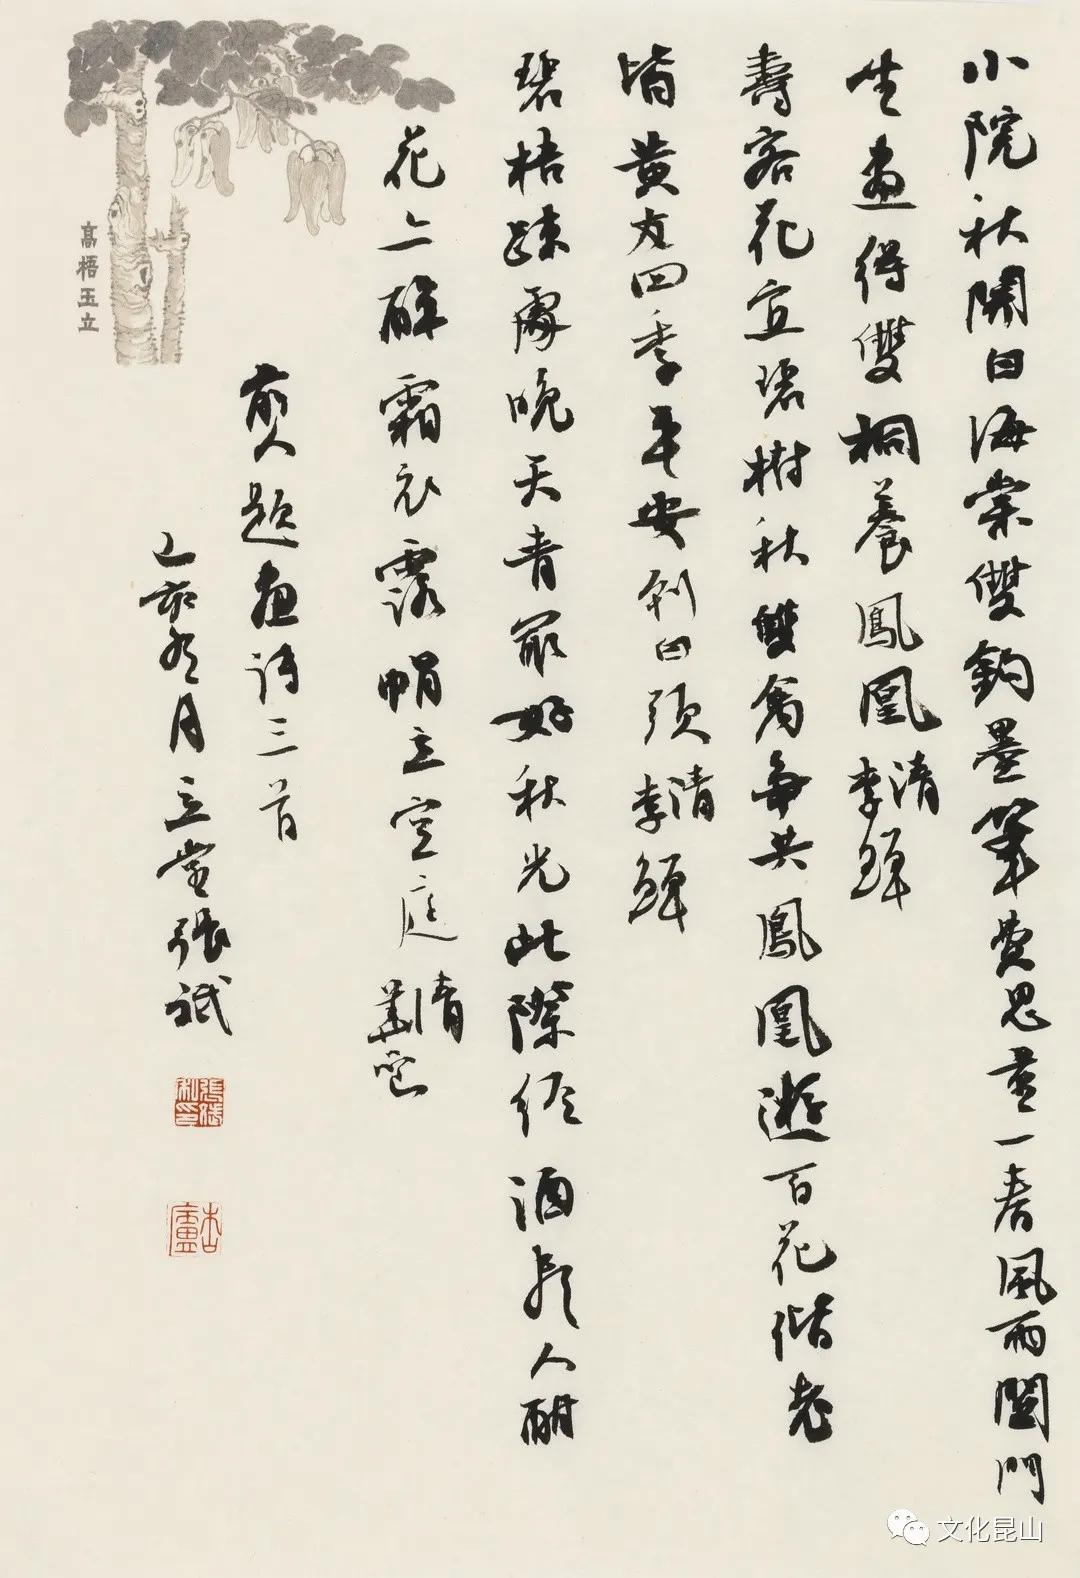 小院秋開白海棠雙鈎墨筆費思量一春風雨關門
坐畫得雙桐養鳳凰 清李鱓
壽客花宜碧樹秋雙禽爭共鳳凰遊百花偕老
皆黃友四季平安到白頭 清李鱓
碧梧踈處晚天青最好秋光此際經酒人酣
花亦醉霜衣露立空庭 清華嵒
前人題畫詩三首
亥月立堂張
高梧玉立
文化昆山